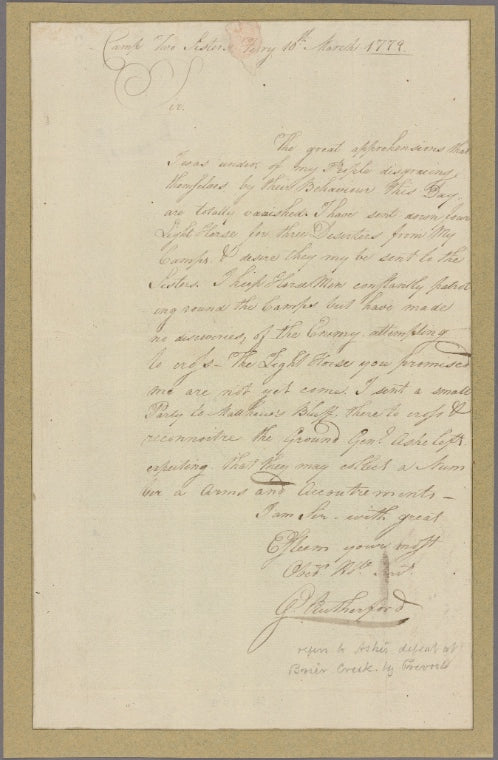 Camp Two Sisters Ferry 10th March 1779.
Sir.
The great apprehensions that
I was under, of my People disgracing
themselves by their Behaviour this Day
are totally vanished. I have sent down four
Light Horse for three Deserters from My
Camp. & desire they may be sent to the
Sisters. I keep Horse Men constantly patrol
ing round the Camps but have made
no discoveries, of the Enemy attempting
to cross - The Light Horse you promised
me are not yet come. I sent a small
Party to Matthews Bluff. there to cross &
reconnoitre the Ground Genl. Ashe left
expecting that they may collect a Num
ber a Arms and Accoutrements -
I am Sir - with great
Esteem your most
Obedt.
G. Rutherford
refers to Ashe's defeat at
Brier Creek by Prevost